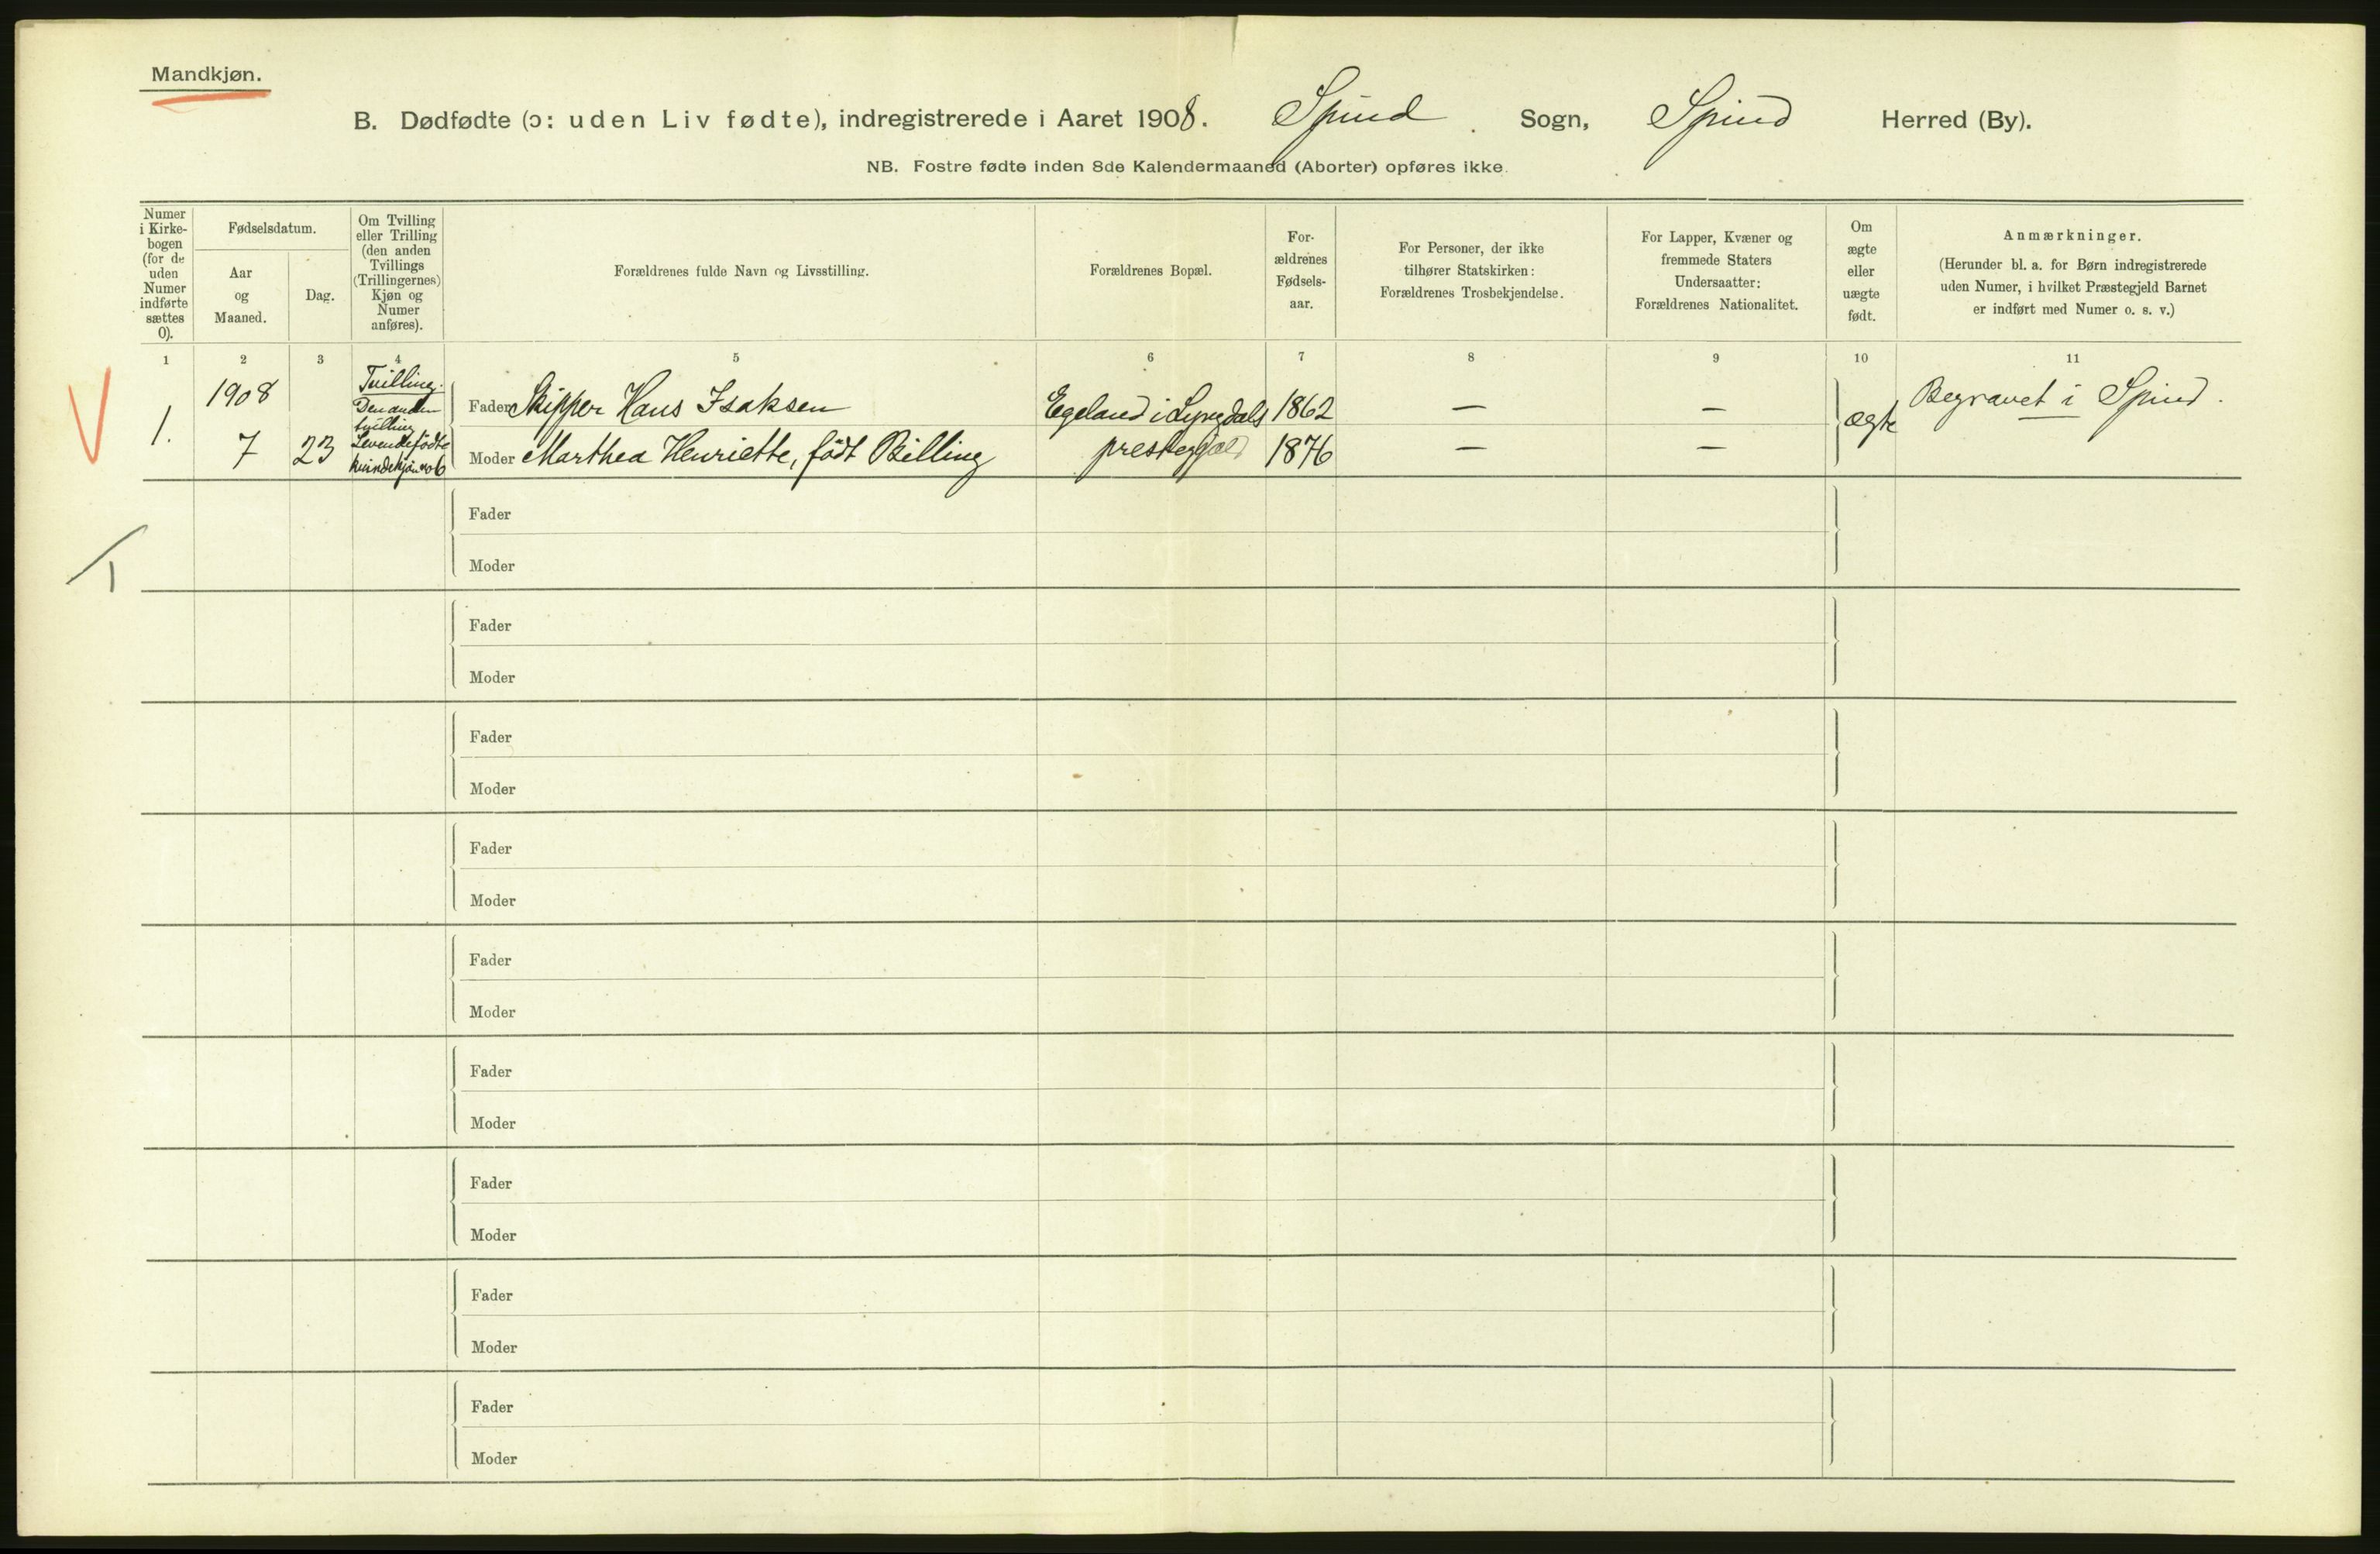 Mandkjøn.
B. Dødfødte (ɔ: uden Liv fødte), indregistrerede i Aaret 1908. Spind. Sogn, Spind Herred (By).
NB. Fostre fødte inden 8de Kalendermaaned (Aborter) opføres ikke.
Numer
i Kirke-
bogen
(for de
uden
Numer
indførte
sættes
0).
Fødselsdatum.
Aar
og
Maaned.
Dag.
Om Tvilling
eller Trilling
(den anden
Tvillings
(Trillingernes)
Kjøn og
Numer
anføres).
Forældrenes fulde Navn og Livsstilling.
Forældrenes Bopæl.
For-
ældrenes
Fødsels-
aar.
For Personer, der ikke
tilhører Statskirken:
Forældrenes Trosbekjendelse.
For Lapper, Kvæner og
fremmede Staters
Undersaatter:
Forældrenes Nationalitet.
Om
ægte
eller
uægte
født.
Anmærkninger.
(Herunder bl. a. for Børn indregistrerede
uden Numer, i hvilket Præstegjeld Barnet
er indført med Numer o. s. v.)
1 2 3 4 5 6 7 8 9 10 11
1.
1908
7 23
Tvilling.
Den anden
tvilling
Levendefødte
kvindekjøn no 6
Fader Skipper Hans Isaksen
Moder Marthea Henriette, født Billing
Egeland i Lyngdals
prestegjæld
1862
1876
— —
— —
ægte
Begravet i Spind.
Fader
Moder
Fader
Moder
Fader
Moder
Fader
Moder
Fader
Moder
Fader
Moder
Fader
Moder
Fader
Moder
Fader
Moder